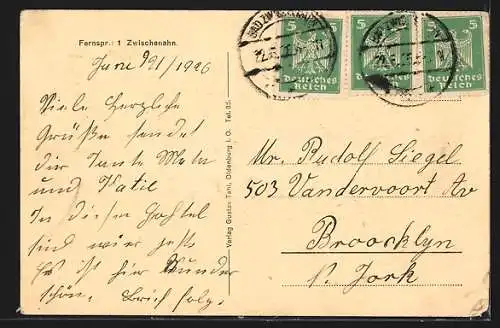 Fernspr.: 1 Zwischenahn.
June 21/1926
Viele Herzliche
Grüße sendet
dir Tante Meta
und Katie
In diesem Hohtel
sind wir jetzt
Es ist hier Wunder
schön. Brief folgt.
Verlag Gustav Tahl, Oldenburg i. O. Tel. 85.
5 5 5 5
Deutsches Reich Deutsches Reich Deutsches Reich
Mr. Rudolf Siegel
503 Vandervoort Av
Broocklyn
N. Jork